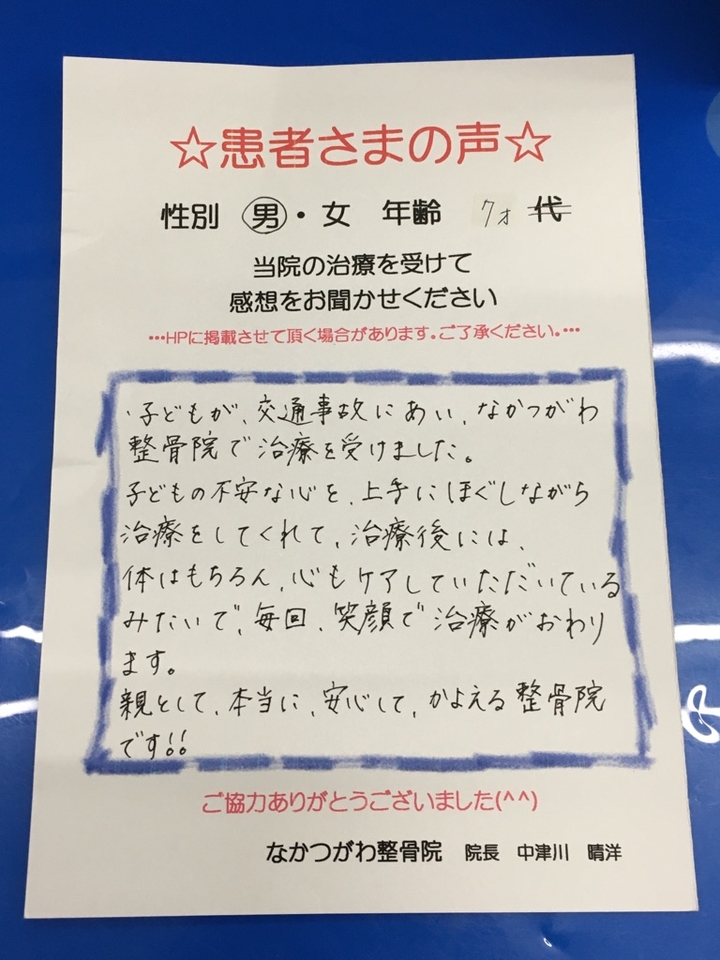 ☆患者さまの声☆
性別 男・女 年齢 7才 代
当院の治療を受けて
感想をお聞かせください
…HPに掲載させて頂く場合があります。ご了承ください。…
子どもが、交通事故にあい、なかつがわ
整骨院で治療を受けました。
子どもの不安な心を、上手にほぐしながら
治療をしてくれて、治療後には、
体はもちろん、心もケアしていただいている
みたいで、毎回、笑顔で治療がおわり
ます。
親として、本当に、安心して、かよえる整骨院
です!!
ご協力ありがとうございました(^^)
なかつがわ整骨院 院長 中津川 晴洋